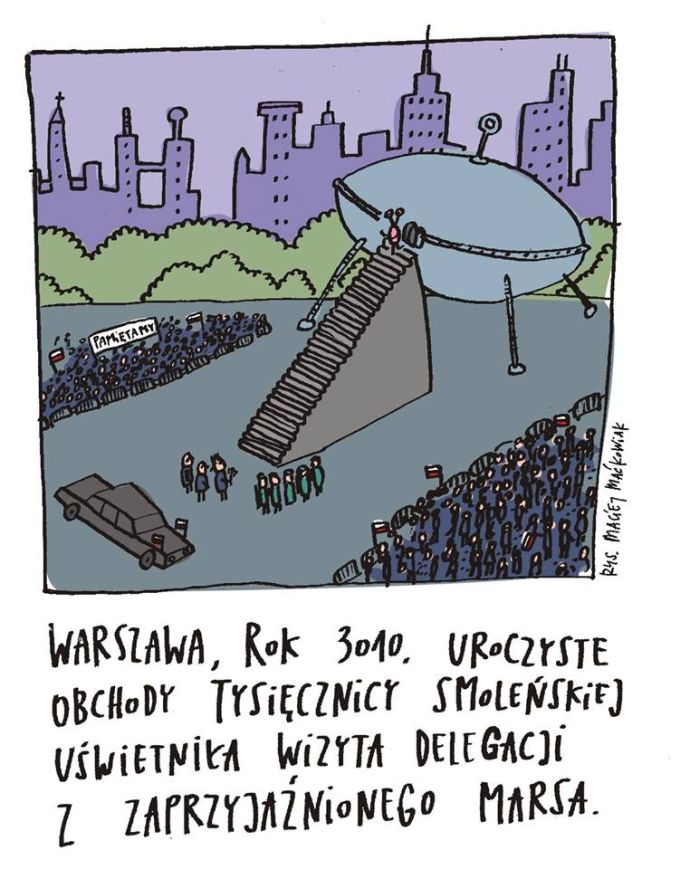 PAMIĘTAMY
RYS. MACIEJ MAĆKOWIAK
WARSZAWA, ROK 3010. UROCZYSTE
OBCHODY TYSIĘCZNICY SMOLEŃSKIEJ
UŚWIETNIŁA WIZYTA DELEGACJI
Z ZAPRZYJAŹNIONEGO MARSA.